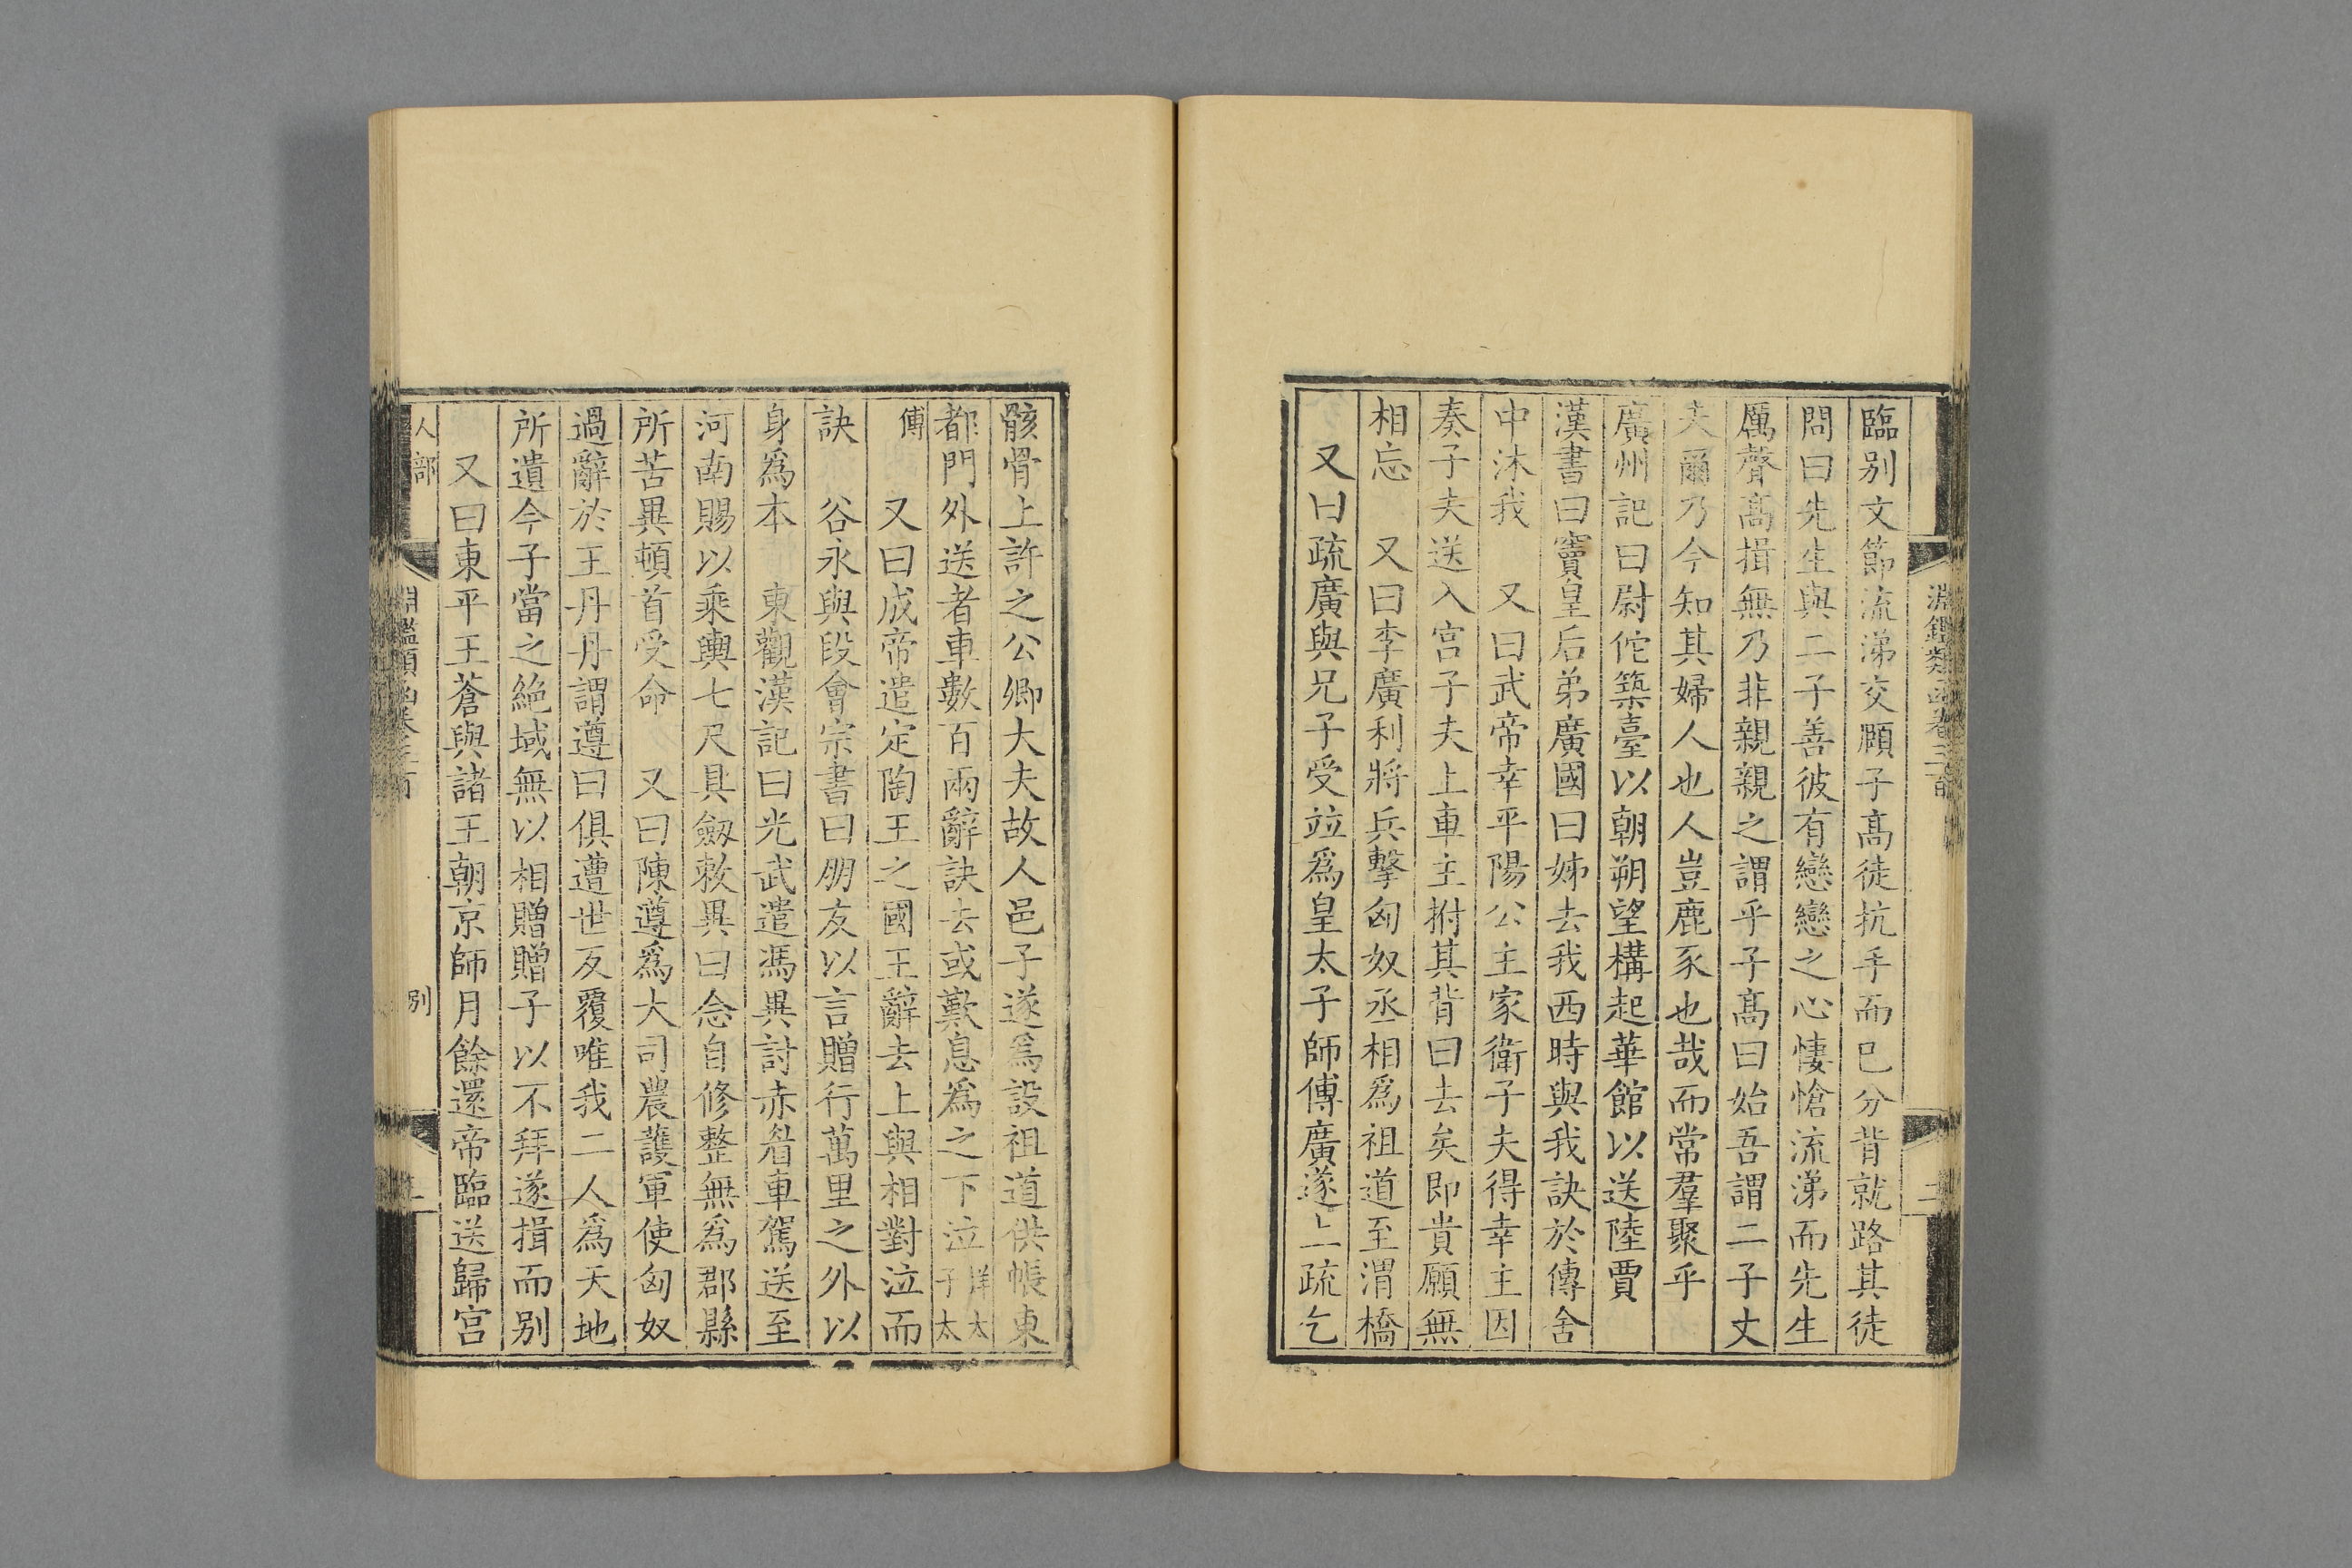 淵鑑類函卷三百
二
臨别文節流涕交頤子髙徒抗手而已分背就路其徒
問曰先生與二子善彼有戀戀之心悽愴流涕而先生
厲聲髙揖無乃非親親之謂乎子髙曰始吾謂二子丈
夫爾乃今知其婦人也人豈鹿豕也哉而常羣聚乎
廣州記曰尉佗築臺以朝朔望構起華館以送陸賈
漢書曰竇皇后弟廣國曰姊去我西時與我訣於傳舍
中沐我　又曰武帝幸平陽公主家衛子夫得幸主因
奏子夫送入宫子夫上車主拊其背曰去矣即貴願無
相忘　又曰李廣利將兵擊匈奴丞相爲祖道至渭橋
又曰疏廣與兄子受竝爲皇太子師傅廣遂上疏乞
骸骨上許之公卿大夫故人邑子遂爲設祖道供帳東
都門外送者車數百兩辭訣去或歎息爲之下泣詳太子太
傅　又曰成帝遣定陶王之國王辭去上與相對泣而
訣　谷永與段會宗書曰朋友以言贈行萬里之外以
身爲本　東觀漢記曰光武遣馮異討赤眉車駕送至
河南賜以乘輿七尺具劔敕異曰念自修整無爲郡縣
所苦異頓首受命　又曰陳遵爲大司農護軍使匈奴
過辭於王丹丹謂遵曰俱遭世反覆唯我二人爲天地
所遺今子當之絶域無以相贈贈子以不拜遂揖而别
又曰東平王蒼與諸王朝京師月餘還帝臨送歸宫
人部
淵鑑類函卷三百
别
二